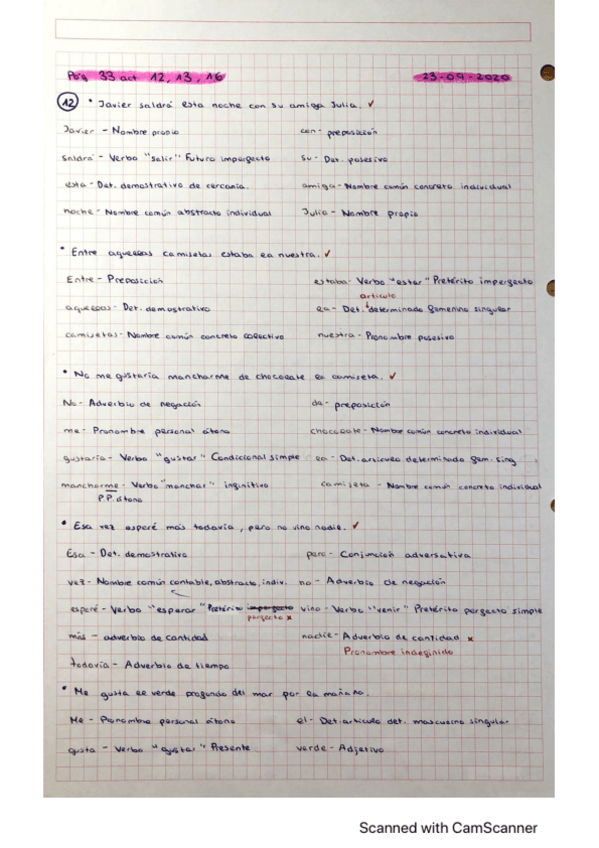 Pág 33 act 12, 13, 16 23-09-2020
12 • Javier saldrá esta noche con su amiga Julia. ✓
Javier - Nombre propio con - preposición
saldrá - Verbo "salir" Futuro imperfecto su - Det. posesivo
esta - Det. demostrativo de cercanía. amiga - Nombre común concreto individual
noche - Nombre común abstracto individual Julia - Nombre propio
• Entre aquellas camisetas estaba la nuestra. ✓
Entre - Preposición estaba - Verbo "estar" Pretérito imperfecto
artículo
aquellas - Det. demostrativo la - Det. determinado femenino singular
camisetas - Nombre común concreto colectivo nuestra - Pronombre posesivo
• No me gustaría mancharme de chocolate la camiseta. ✓
No - Adverbio de negación de - preposición
me - Pronombre personal átono chocolate - Nombre común concreto individual
gustaría - Verbo "gustar" Condicional simple la - Det. artículo determinado fem. sing
mancharme - Verbo "manchar" infinitivo camiseta - Nombre común concreto individual
P.P. átono
• Esa vez esperé más todavía, pero no vino nadie. ✓
Esa - Det. demostrativo pero - Conjunción adversativa
vez - Nombre común contable, abstracto, indiv. no - Adverbio de negación
esperé - Verbo "esperar" Pretérito imperfecto vino - Verbo "venir" Pretérito perfecto simple
perfecto x
más - adverbio de cantidad nadie - Adverbio de cantidad x
Pronombre indefinido
todavía - Adverbio de tiempo
• Me gusta el verde profundo del mar por la mañana.
Me - Pronombre personal átono el - Det. artículo det. masculino singular
gusta - Verbo "gustar" Presente verde - Adjetivo
Scanned with CamScanner